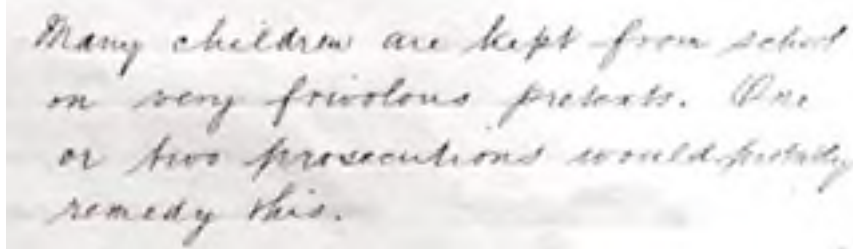 Many children are kept from school
on very frivolous pretexts. One
or two prosecutions would probably
remedy this.